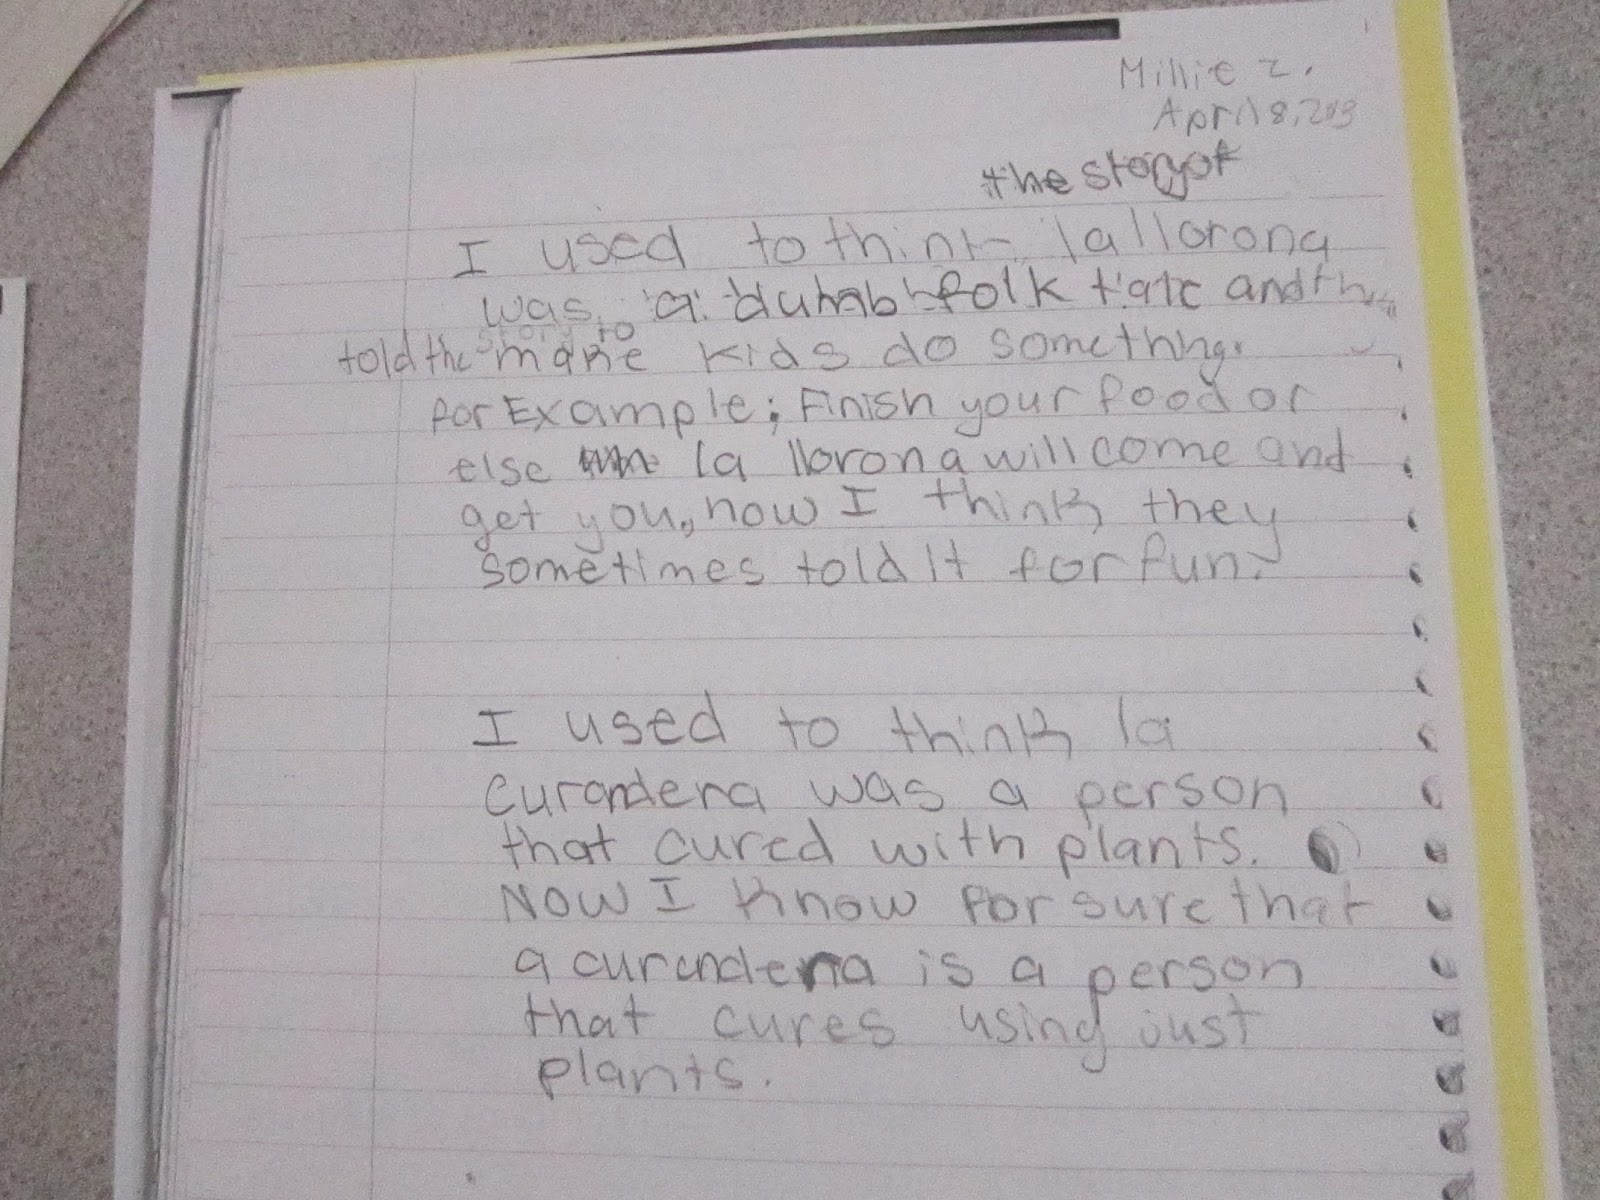 Millie Z.
April 8, 2013
the story of
I used to think la llorona
was a dumb folk tale and
told the story to make kids do something.
for Example; Finish your food or
else la llorona will come and
get you, now I think they
sometimes told it for fun.
I used to think la
curandera was a person
that cured with plants.
Now I know for sure that
a curandera is a person
that cures using just
plants.